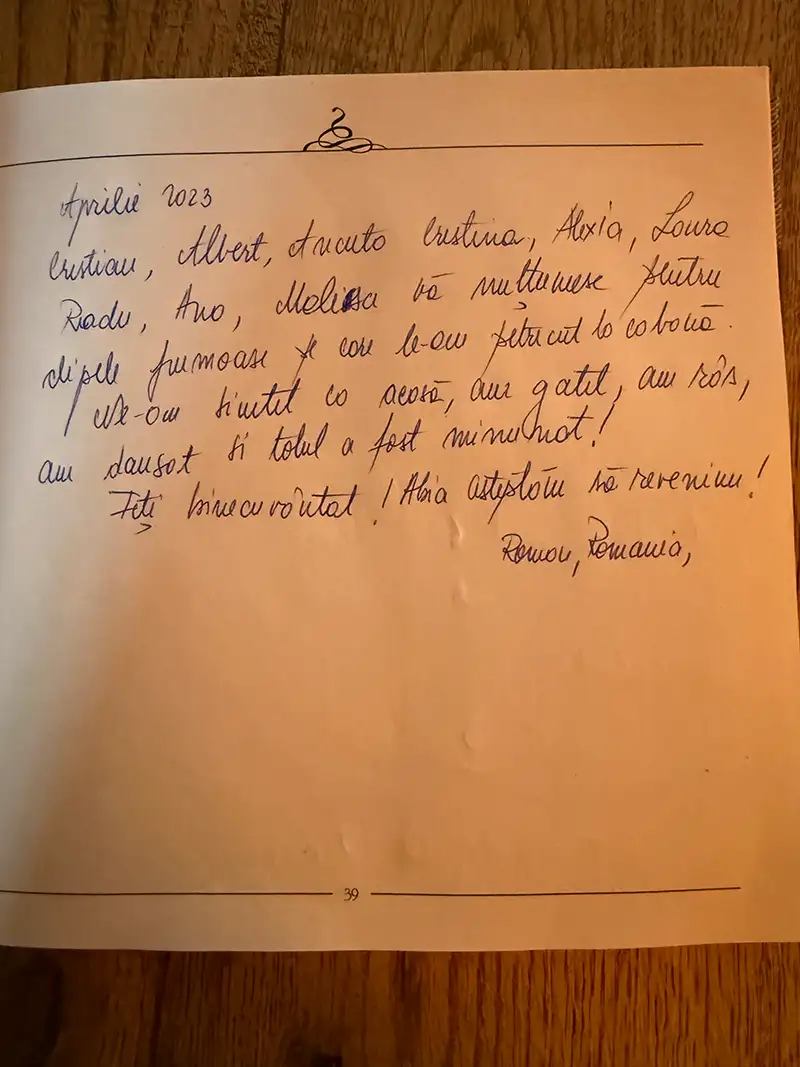 Aprilie 2023
Cristian, Albert, Ancuta Cristina, Alexia, Laura
Radu, Ana, Malisa vă multumesc pentru
clipele frumoase pe care le-am petrecut la cabană.
Ne-am simtit ca acasă, am gatit, am râs,
am dansat si totul a fost minunat!
Fiți binecuvântat! Abia asteptăm să revenim!
Roman, Romania,
39